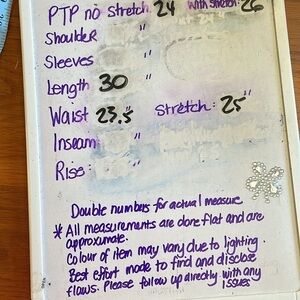 PTP no Stretch: 24 With Stretch: 26
Shoulder "
Sleeves "
Length 30 "
Waist 23.5" Stretch: 25"
Inseam "
Rise: "
Double numbers for actual measure
* All measurements are done flat and are
approximate.
Colour of item may vary due to lighting.
Best effort made to find and disclose
flaws. Please follow up directly with any
issues